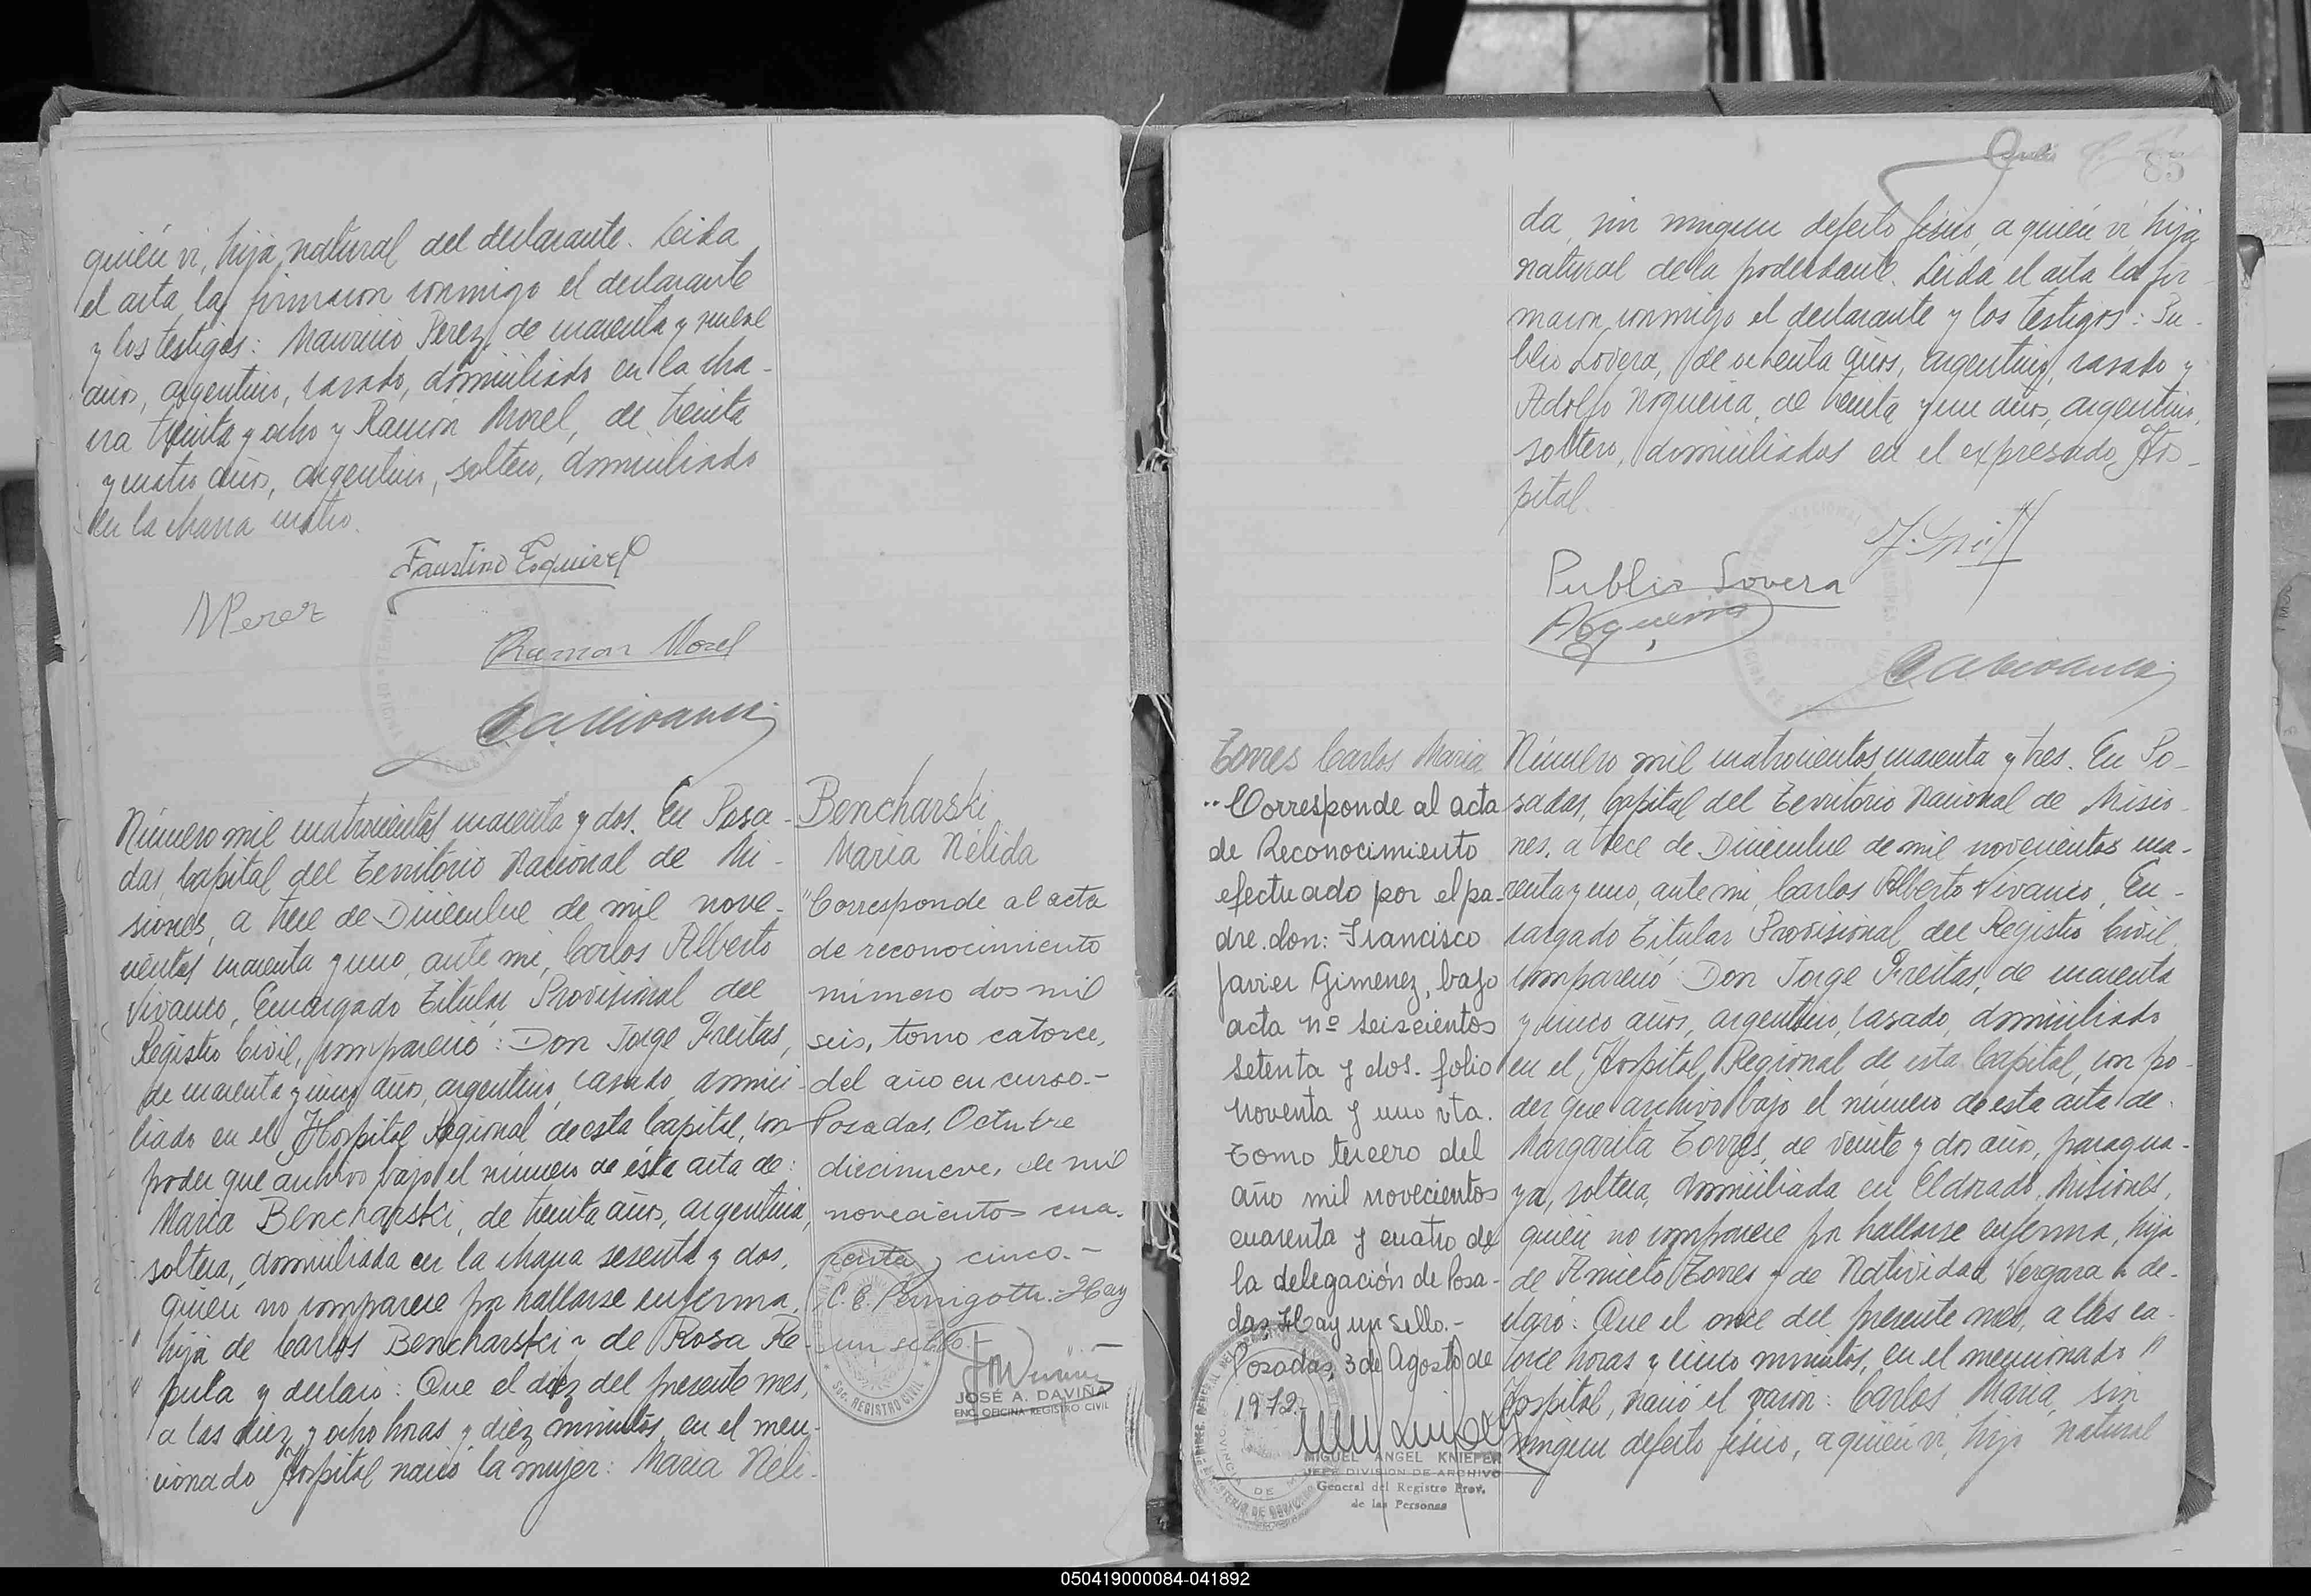 quién vi, hija natural del declarante. Leida
el acta la firmaron conmigo el declarante
y los testigos: Mauricio Perez, de cuarenta y nueve
años, argentino, casado, domiciliado en la cha-
cra treinta y ocho y Ramón Morel, de treinta
y cuatro años, argentino, soltero, domiciliado
en la chacra cuatro.
Faustino Esquivel
MPerez
Ramon Morel
Número mil cuatrocientos cuarenta y dos. En Posa-
das, Capital del Territorio Nacional de Mi-
siones, a trece de Diciembre de mil nove-
cientos cuarenta y uno, ante mi, Carlos Alberto
Vivanco, Encargado Titular Provisional del
Registro Civil, compareció: Don Jorge Freitas,
de cuarenta y cinco años, argentino, casado, domici-
liado en el Hospital Regional de esta Capital, con
poder que archivo bajo el número de ésta acta de:
Maria Bencharski, de treinta años, argentina,
soltera, domiciliada en la chacra sesenta y dos,
quién no comparece por hallarse enferma,
" hija de Carlos Bencharski y de Rosa Re-
" pula y declaró: Que el diez del presente mes,
a las diez y ocho horas y diez minutos, en el men-
cionado Hospital nació la mujer: Maria Néli-
Bencharski
Maria Nélida
"Corresponde al acta
de reconocimiento
número dos mil
seis, tomo catorce,
del año en curso.-
Posadas, Octubre
diecinueve, de mil
novecientos cua-
renta y cinco.-
C. E. Pernigotti. Hay
un sello.
JOSÉ A. DAVIÑA
ENC. OFICINA REGISTRO CIVIL
85
da, sin ningun defecto fisico, a quién vi, hija
natural de la poderdante. Leida el acta la fir-
maron conmigo el declarante y los testigos: Pu-
blio Lovera, de ochenta años, argentino, casado y
Adolfo Nogueira, de treinta y un años, argentino,
soltero, domiciliados en el expresado Hos-
pital.
Publio Lovera
Torres Carlos Maria
"Corresponde al acta
de Reconocimiento
efectuado por el pa-
dre don: Francisco
Javier Gimenez, bajo
acta nº seiscientos
setenta y dos. folio
noventa y uno vta.
Tomo tercero del
año mil novecientos
cuarenta y cuatro de
la delegación de Posa-
das, Hay un sello.-
Posadas, 3 de Agosto de
1972.-
MIGUEL ANGEL KNIEPER
JEFE DIVISION DE ARCHIVO
General del Registro Prov.
de las Personas
Número mil cuatrocientos cuarenta y tres. En Po-
sadas, Capital del Territorio Nacional de Misio-
nes, a trece de Diciembre de mil novecientos cua-
renta y uno, ante mi, Carlos Alberto Vivanco, En-
cargado Titular Provisional del Registro Civil,
compareció: Don Jorge Freitas, de cuarenta
y cinco años, argentino, casado, domiciliado
en el Hospital Regional de esta Capital, con po-
der que archivo bajo el número de esta acta de:
Margarita Torres, de veinte y dos años, paragua-
ya, soltera, domiciliada en Eldorado, Misiones,
quién no comparece por hallarse enferma, hija
de Aniceto Torres y de Natividad Vergara y de-
claró: Que el once del presente mes, a las ca-
torce horas y cinco minutos, en el mencionado "
Hospital, nació el varón: Carlos Maria, sin
ningun defecto fisico, a quién vi, hijo natural
050419000084-041892